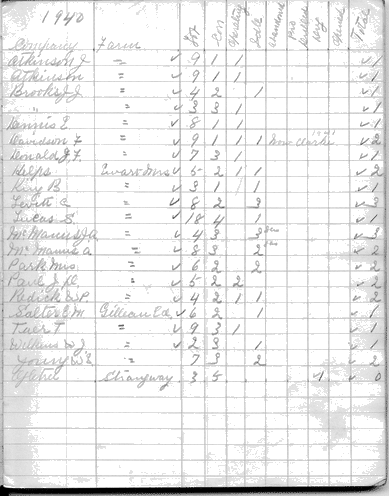 1940
Company Farm Lot Con Operating Idle Abandoned Dug Total
Atkinson J " ✓ 9 1 1 ✓ 1
Atkinson " ✓ 9 1 1 ✓ 1
Brooks J J " ✓ 4 2 1 ✓ 1
" " ✓ 3 3 1 ✓ 1
Dennis E " ✓ 8 1 1 ✓ 1
Davidson F " ✓ 9 1 1 1 Now Clarke ✓ 2
Donald J F. " ✓ 7 3 1 ✓ 1
Helps Ewart Mrs ✓ 5 2 1 1 ✓ 2
King B " ✓ 3 1 1 ✓ 1
Levitt C " ✓ 8 2 3 ✓ 3
Lucas S " ✓ 18 4 1 ✓ 1
McManus J A " ✓ 4 3 3 ✓ 3
McManus A " ✓ 8 3 2 ✓ 2
Park Mrs " ✓ 6 2 2 ✓ 2
Paul J D " ✓ 5 2 2 ✓ 2
Redick & P. " ✓ 4 2 1 1 ✓ 2
Salter E M Gillean Ed ✓ 6 2 1 ✓ 1
Tuer T " ✓ 9 3 1 ✓ 1
Wilkens W J " ✓ 2 3 1 ✓ 1
Young W E " 7 3 2 ✓ 2
Strangway 3 5 1 ✓ 0